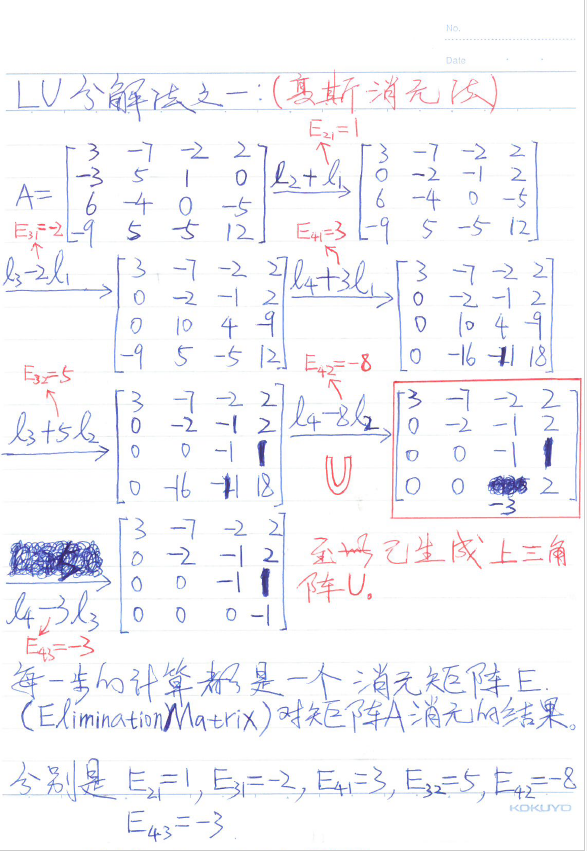 No.
Date
LU分解法之一:(高斯消元法)
E₂₁=1
A= [3 -7 -2 2; -3 5 1 0; 6 -4 0 -5; -9 5 -5 12] l₂+l₁ [3 -7 -2 2; 0 -2 -1 2; 6 -4 0 -5; -9 5 -5 12]
E₃₁=-2 E₄₁=3
l₃-2l₁ [3 -7 -2 2; 0 -2 -1 2; 0 10 4 -9; -9 5 -5 12] l₄+3l₁ [3 -7 -2 2; 0 -2 -1 2; 0 10 4 -9; 0 -16 -11 18]
E₃₂=5 E₄₂=-8
l₃+5l₂ [3 -7 -2 2; 0 -2 -1 2; 0 0 -1 1; 0 -16 -11 18] l₄-8l₂ [3 -7 -2 2; 0 -2 -1 2; 0 0 -1 1; 0 0 -3 2]
U
l₄-3l₃ [3 -7 -2 2; 0 -2 -1 2; 0 0 -1 1; 0 0 0 -1]
E₄₃=-3
至此已生成上三角
阵U。
每一步的计算都是一个消元矩阵E
(Elimination Matrix)对矩阵A消元的结果。
分别是 E₂₁=1, E₃₁=-2, E₄₁=3, E₃₂=5, E₄₂=-8
E₄₃=-3
KOKUYO